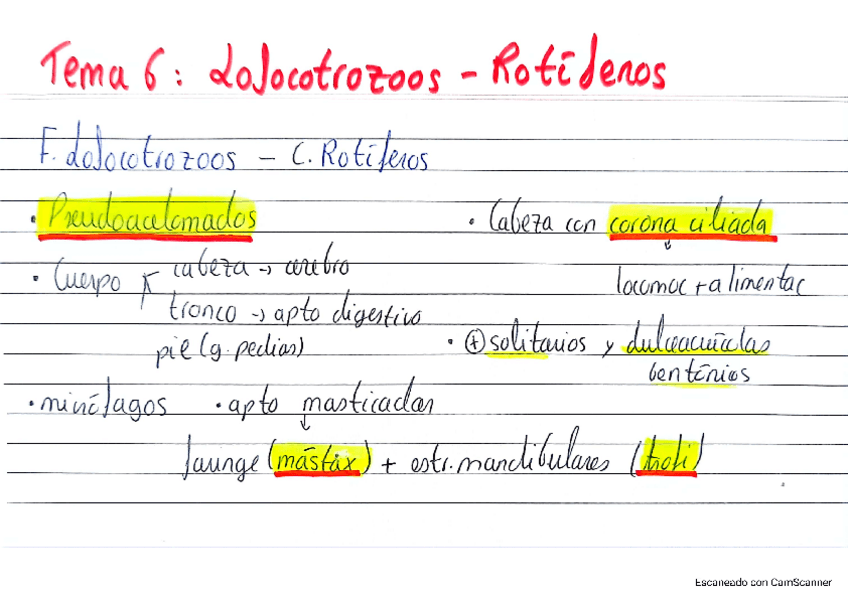 Tema 6: Lofocotrozoos - Rotíferos
F. Lofocotrozoos - C. Rotíferos
• Pseudoacelomados
• Cuerpo cabeza → cerebro
tronco → apto digestivo
pie (g. pedias)
• Cabeza con corona ciliada
↓
locomoc + alimentac
• ⊕ solitarios y dulceacuícolas
bentónios
• minífagos • apto masticador
↓
faringe (mástax) + estr. mandibulares (trofi)
Escaneado con CamScanner